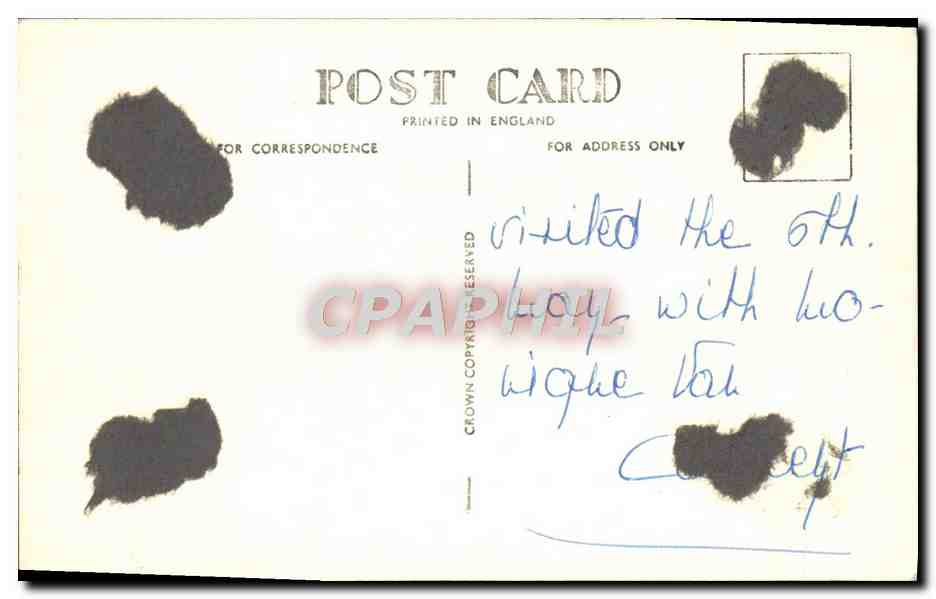 POST CARD
PRINTED IN ENGLAND
FOR CORRESPONDENCE
FOR ADDRESS ONLY
CROWN COPYRIGHT RESERVED
CPAPHIL
visited the 6th.
may with mo-
nique Van